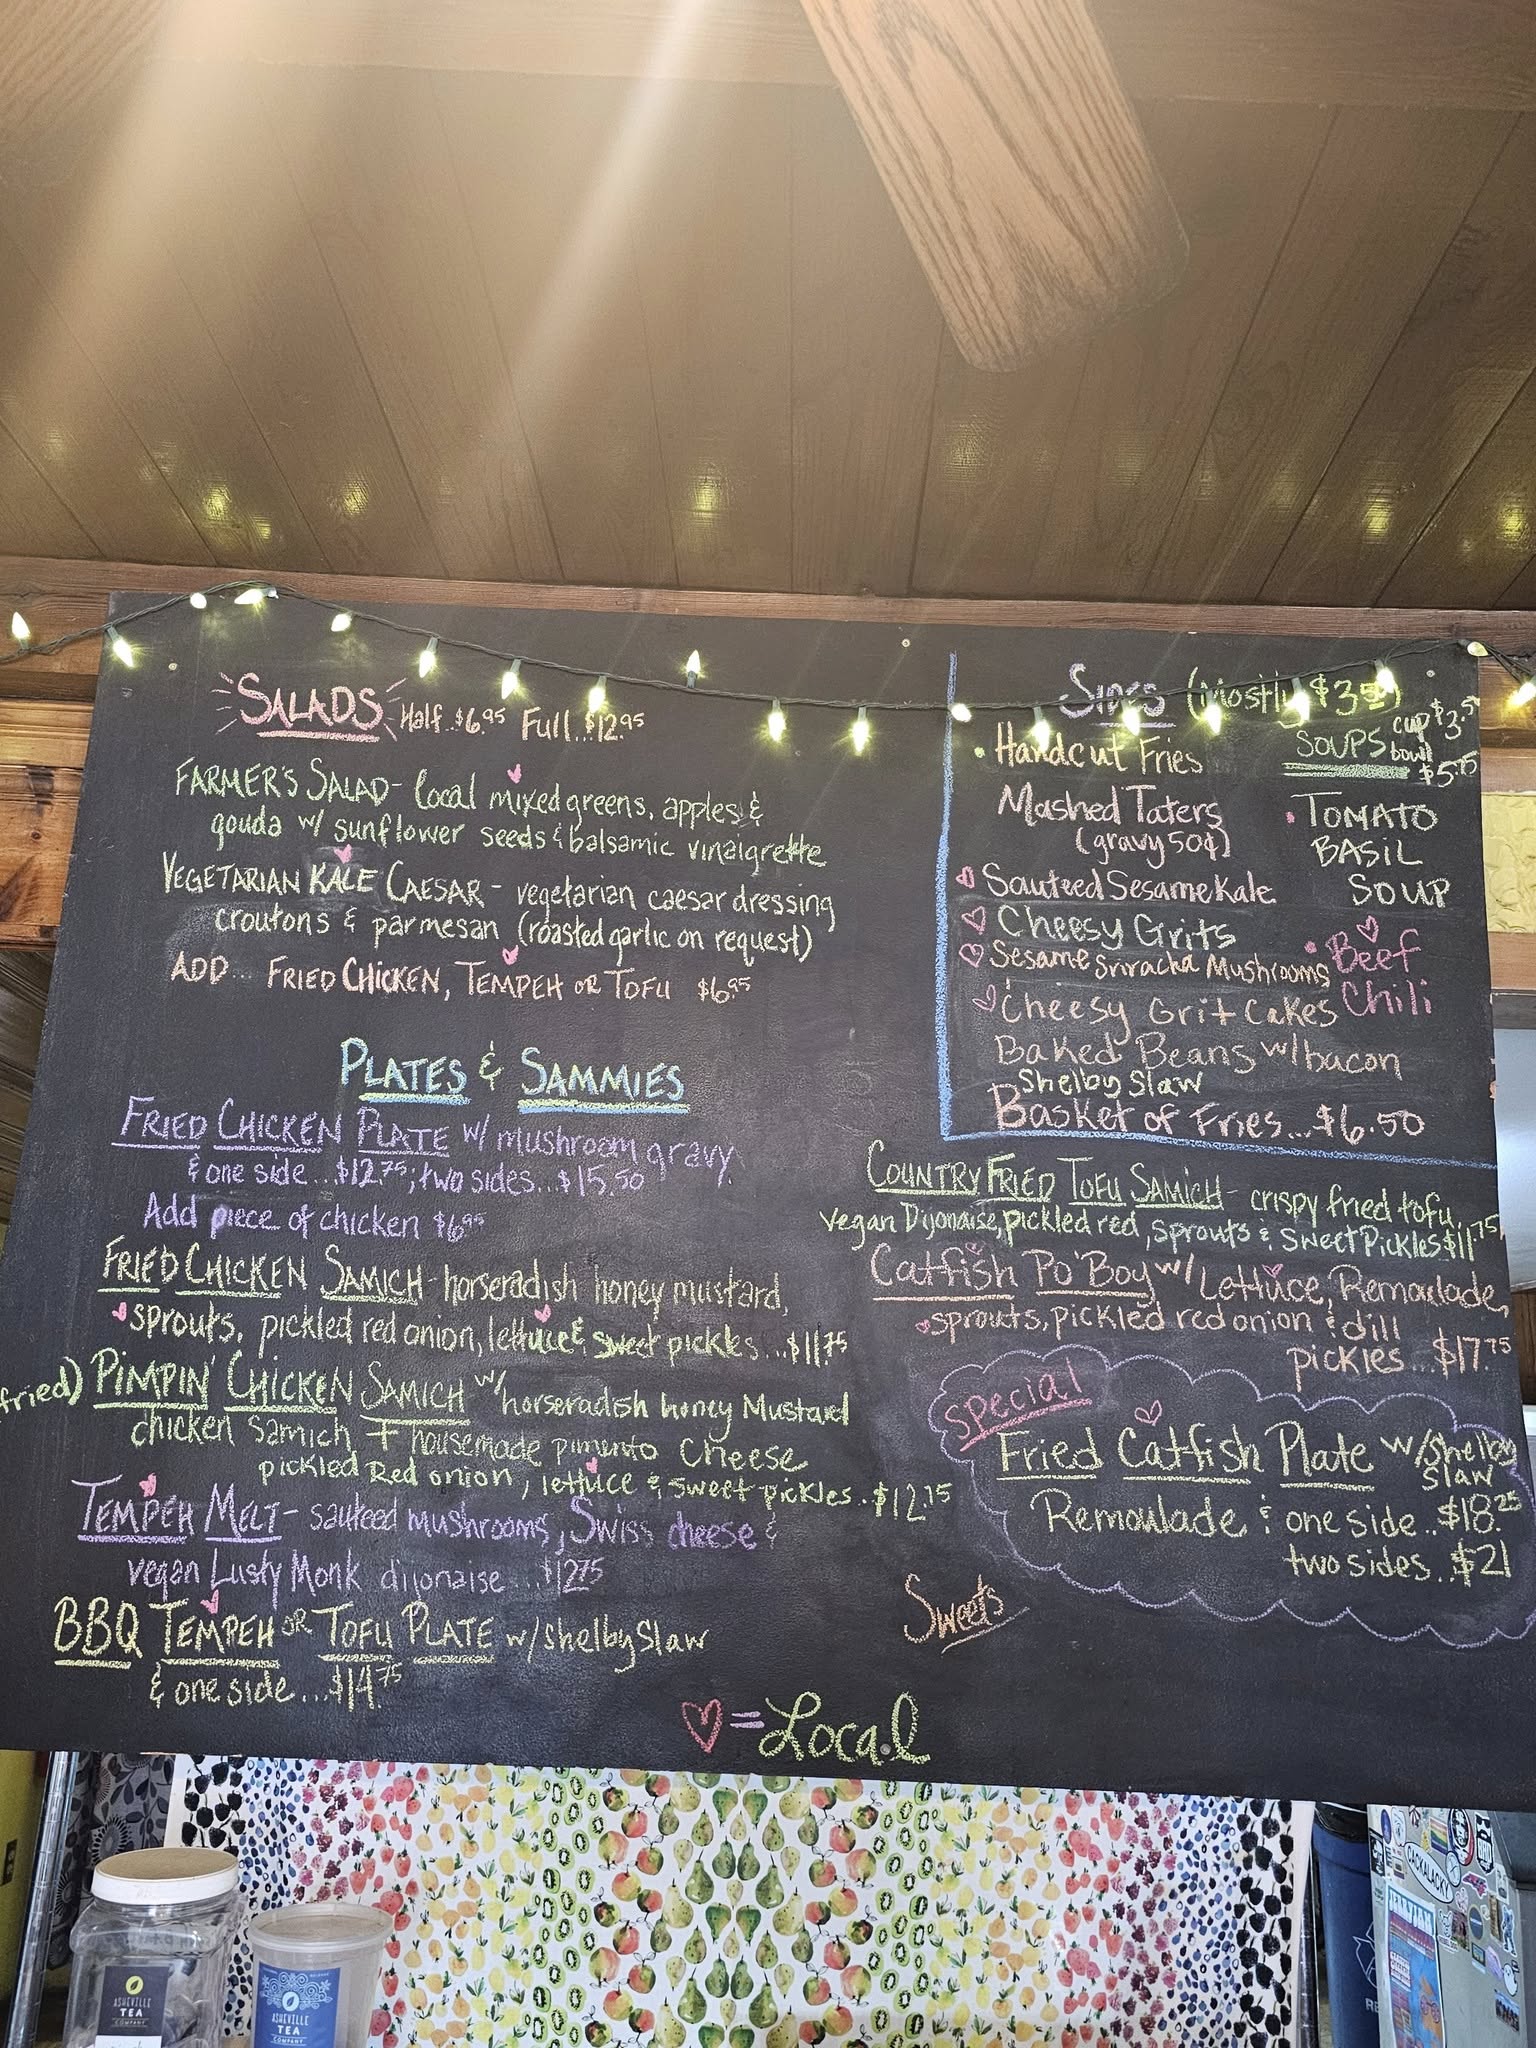 SALADS Half..$6.95 Full...$12.95
FARMER'S SALAD - local mixed greens, apples &
gouda w/ sunflower seeds & balsamic vinaigrette
VEGETARIAN KALE CAESAR - vegetarian caesar dressing
croutons & parmesan (roasted garlic on request)
ADD... FRIED CHICKEN, TEMPEH OR TOFU $6.95
PLATES & SAMMIES
FRIED CHICKEN PLATE w/ mushroom gravy
& one side...$12.75; two sides...$15.50
Add piece of chicken $6.95
FRIED CHICKEN SAMICH - horseradish honey mustard,
sprouts, pickled red onion, lettuce & sweet pickles...$11.75
fried) PIMPIN' CHICKEN SAMICH w/ horseradish honey Mustard
chicken samich + housemade pimento Cheese
pickled Red onion, lettuce & sweet pickles..$12.75
TEMPEH MELT - sauteed mushrooms, Swiss cheese &
vegan Lusty Monk dijonaise...$12.75
BBQ TEMPEH OR TOFU PLATE w/ Shelby Slaw
& one side...$14.75
SIDES (Mostly $3.50)
Handcut Fries
Mashed Taters
(gravy 50¢)
Sauteed Sesame Kale
Cheesy Grits
Sesame Sriracha Mushrooms
Cheesy Grit Cakes
Baked Beans w/ bacon
Shelby Slaw
Basket of Fries...$6.50
SOUPS cup $3.50
bowl $5.75
TOMATO
BASIL
SOUP
Beef
Chili
COUNTRY FRIED TOFU SAMICH - crispy fried tofu,
vegan Dijonaise, pickled red, sprouts & sweet Pickles $11.75
Catfish Po'Boy w/ Lettuce, Remoulade,
sprouts, pickled red onion & dill
pickles...$17.75
Special
Fried Catfish Plate w/ Shelby
Slaw
Remoulade & one side..$18.25
two sides...$21
Sweets
= Local
ASHEVILLE
TEA
COMPANY
ASHEVILLE
TEA
COMPANY
CACKALACKY